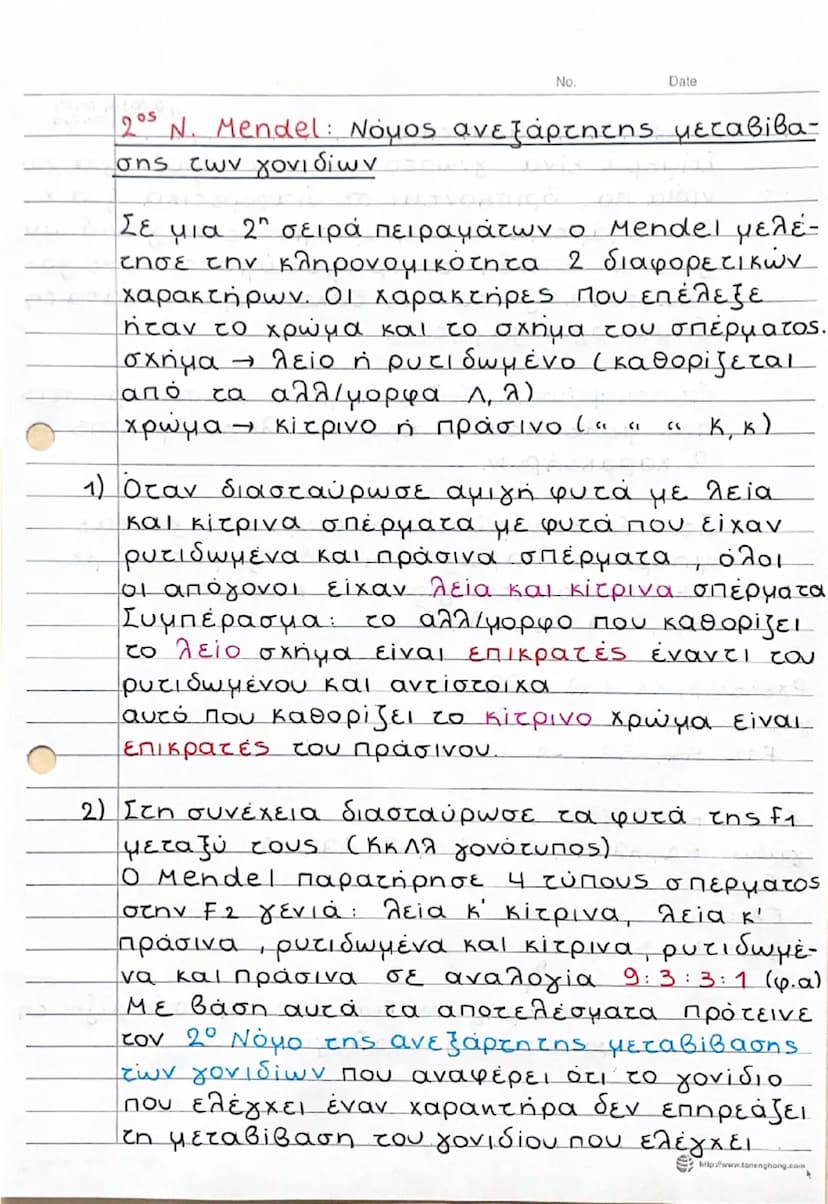 No. Date
2ος Ν. Mendel: Νόμος ανεξάρτητης μεταβίβα-
σης των γονιδίων
Σε μια 2η σειρά πειραμάτων ο Mendel μελέ-
τησε την κληρονομικότητα 2 διαφορετικών
χαρακτήρων. Οι χαρακτήρες που επέλεξε
ήταν το χρώμα και το σχήμα του σπέρματος.
σχήμα → λείο ή ρυτιδωμένο (καθορίζεται
από τα αλλ/μορφα Λ, λ)
χρώμα → κίτρινο ή πράσινο (" " " Κ, κ)
1) Όταν διασταύρωσε αμιγή φυτά με λεία
και κίτρινα σπέρματα με φυτά που είχαν
ρυτιδωμένα και πράσινα σπέρματα, όλοι
οι απόγονοι είχαν λεία και κίτρινα σπέρματα
Συμπέρασμα: το αλλ/μορφο που καθορίζει
το λείο σχήμα είναι επικρατές έναντι του
ρυτιδωμένου και αντίστοιχα
αυτό που καθορίζει το κίτρινο χρώμα είναι
επικρατές του πράσινου.
2) Στη συνέχεια διασταύρωσε τα φυτά της F1
μεταξύ τους (ΚκΛλ γονότυπος)
Ο Mendel παρατήρησε 4 τύπους σπέρματος
στην F2 γενιά: λεία κ' κίτρινα, λεία κ'
πράσινα, ρυτιδωμένα και κίτρινα, ρυτιδωμέ-
να και πράσινα σε αναλογία 9:3:3:1 (φ.α)
Με βάση αυτά τα αποτελέσματα πρότεινε
τον 2ο Νόμο της ανεξάρτητης μεταβίβασης
των γονιδίων που αναφέρει ότι το γονίδιο
που ελέγχει έναν χαρακτήρα δεν επηρεάζει
τη μεταβίβαση του γονιδίου που ελέγχει
http://www.tanenghong.com